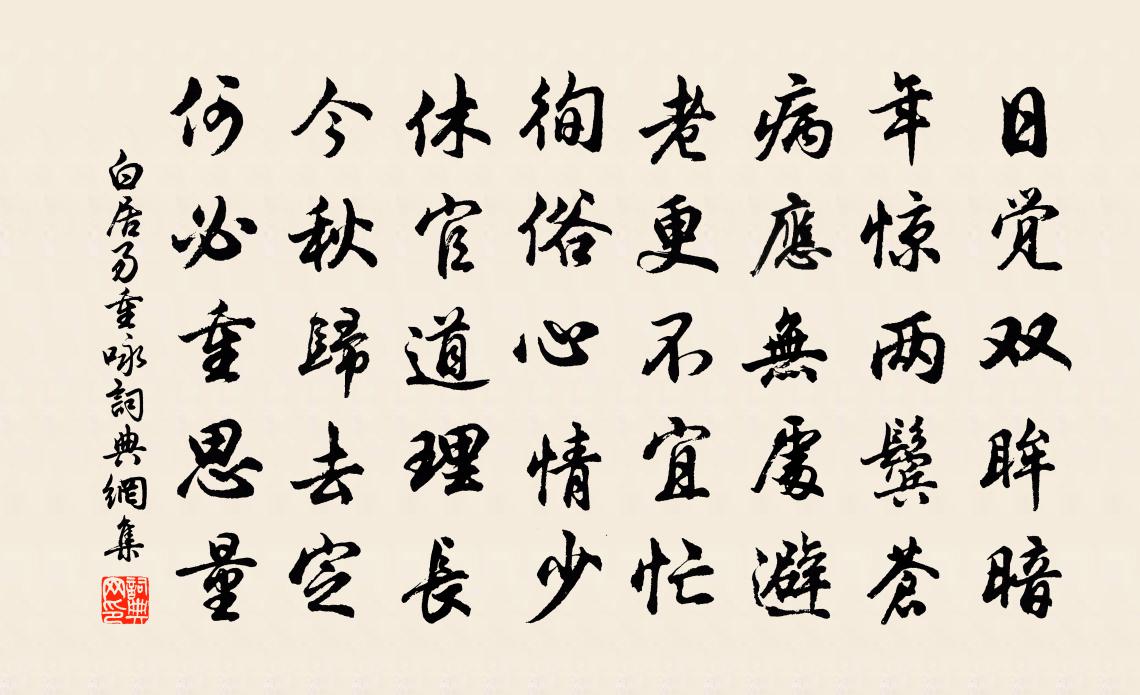 日觉双眸暗
年惊两鬓苍
病應無處避
老更不宜忙
徇俗心情少
休官道理長
今秋歸去定
何必重思量
白居易重咏詞典網集
詞典网印